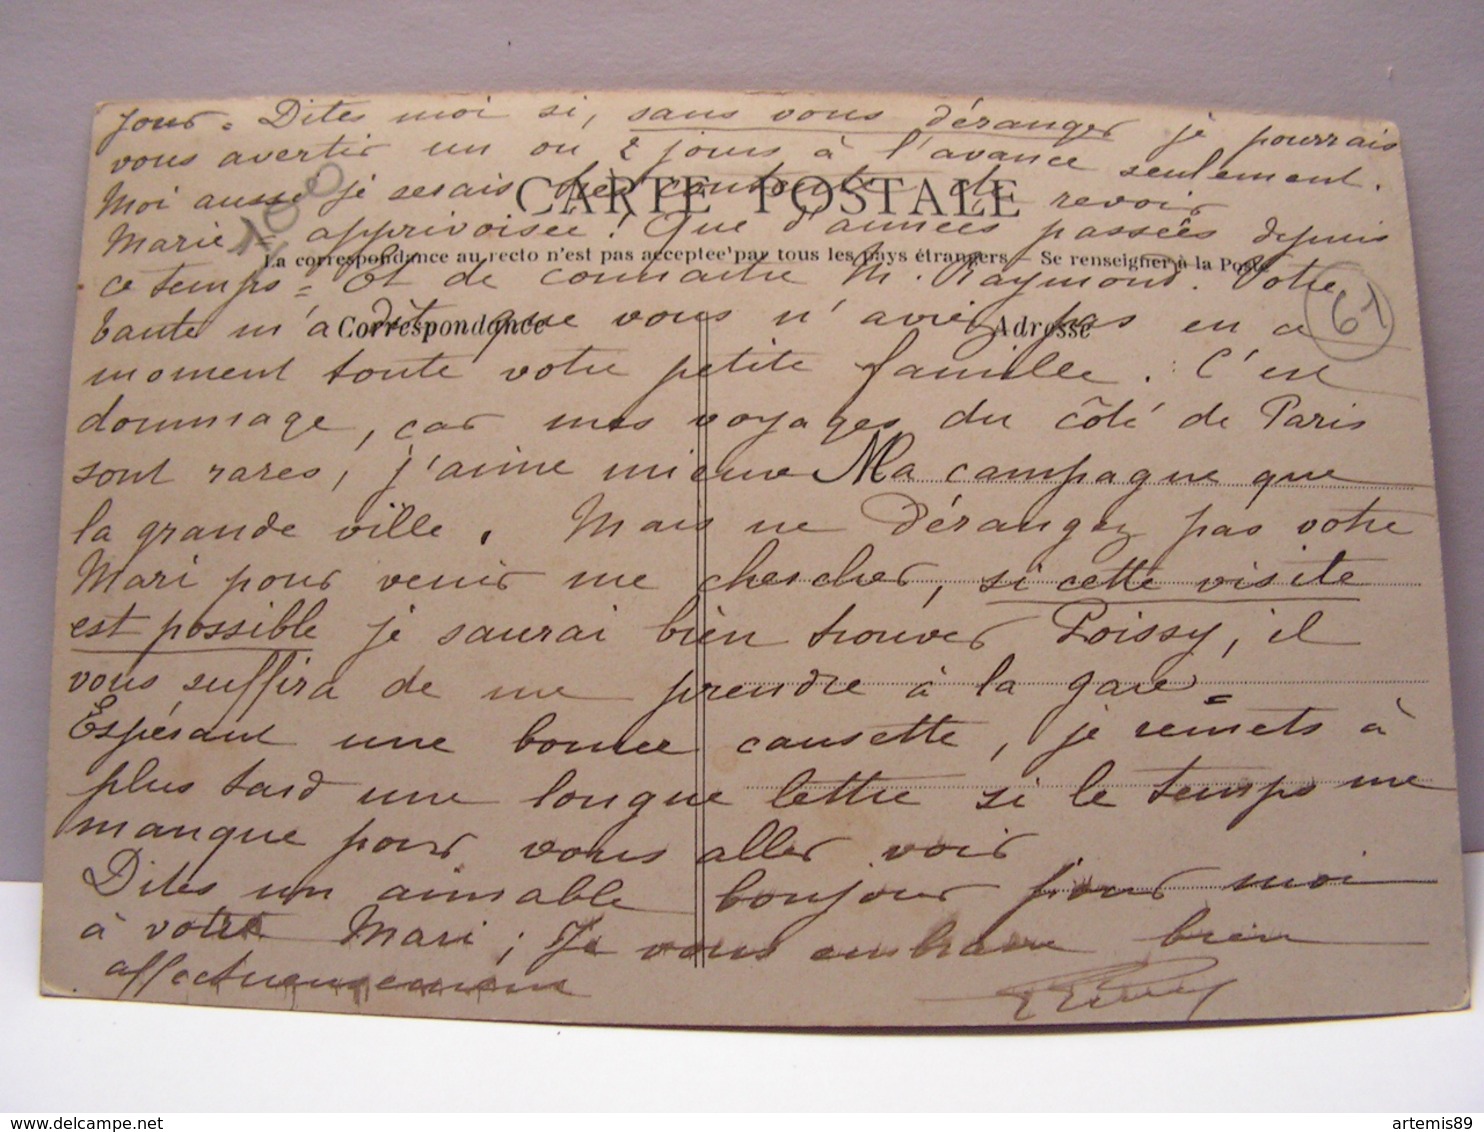 jour = Dites moi si, sans vous déranger je pourrais
vous avertir un ou 2 jours à l'avance seulement.
Moi aussi je serais très contente de revoir
CARTE POSTALE
100
Marie = apprivoisée! Que d'années passées depuis
La correspondance au recto n'est pas acceptée par tous les pays étrangers — Se renseigner à la Poste
ce temps = Et de connaitre M. Raymond. Votre
tante m'a dit que vous n'aviez pas en ce
Correspondance
Adresse
61
moment toute votre petite famille. C'est
dommage, car mes voyages du côté de Paris
sont rares, j'aime mieux Ma campagne que
la grande ville. Mais ne dérangez pas votre
Mari pour venir me chercher, si cette visite
est possible je saurai bien trouver Poissy, il
vous suffira de me prendre à la gare =
Espérant une bonne causette, je remets à
plus tard une longue lettre si le temps me
manque pour vous aller voir
Dites un aimable bonjour pour moi
à votre Mari; Je vous embrasse bien
affectueusement
artemis89
delcampe.net